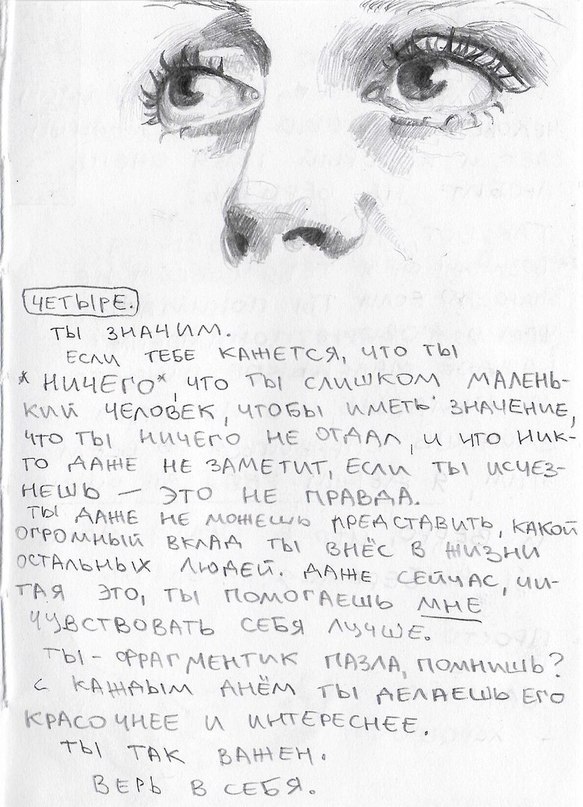 ЧЕТЫРЕ.
ТЫ ЗНАЧИМ.
ЕСЛИ ТЕБЕ КАЖЕТСЯ, ЧТО ТЫ
*НИЧЕГО*, ЧТО ТЫ СЛИШКОМ МАЛЕНЬ-
КИЙ ЧЕЛОВЕК, ЧТОБЫ ИМЕТЬ ЗНАЧЕНИЕ,
ЧТО ТЫ НИЧЕГО НЕ ОТДАЛ, И ЧТО НИК-
ТО ДАЖЕ НЕ ЗАМЕТИТ, ЕСЛИ ТЫ ИСЧЕЗ-
НЕШЬ — ЭТО НЕ ПРАВДА.
ТЫ ДАЖЕ НЕ МОЖЕШЬ ПРЕДСТАВИТЬ, КАКОЙ
ОГРОМНЫЙ ВКЛАД ТЫ ВНЁС В ЖИЗНИ
ОСТАЛЬНЫХ ЛЮДЕЙ. ДАЖЕ СЕЙЧАС, ЧИ-
ТАЯ ЭТО, ТЫ ПОМОГАЕШЬ МНЕ
ЧУВСТВОВАТЬ СЕБЯ ЛУЧШЕ.
ТЫ - ФРАГМЕНТИК ПАЗЛА, ПОМНИШЬ?
С КАЖДЫМ ДНЁМ ТЫ ДЕЛАЕШЬ ЕГО
КРАСОЧНЕЕ И ИНТЕРЕСНЕЕ.
ТЫ ТАК ВАЖЕН.
ВЕРЬ В СЕБЯ.